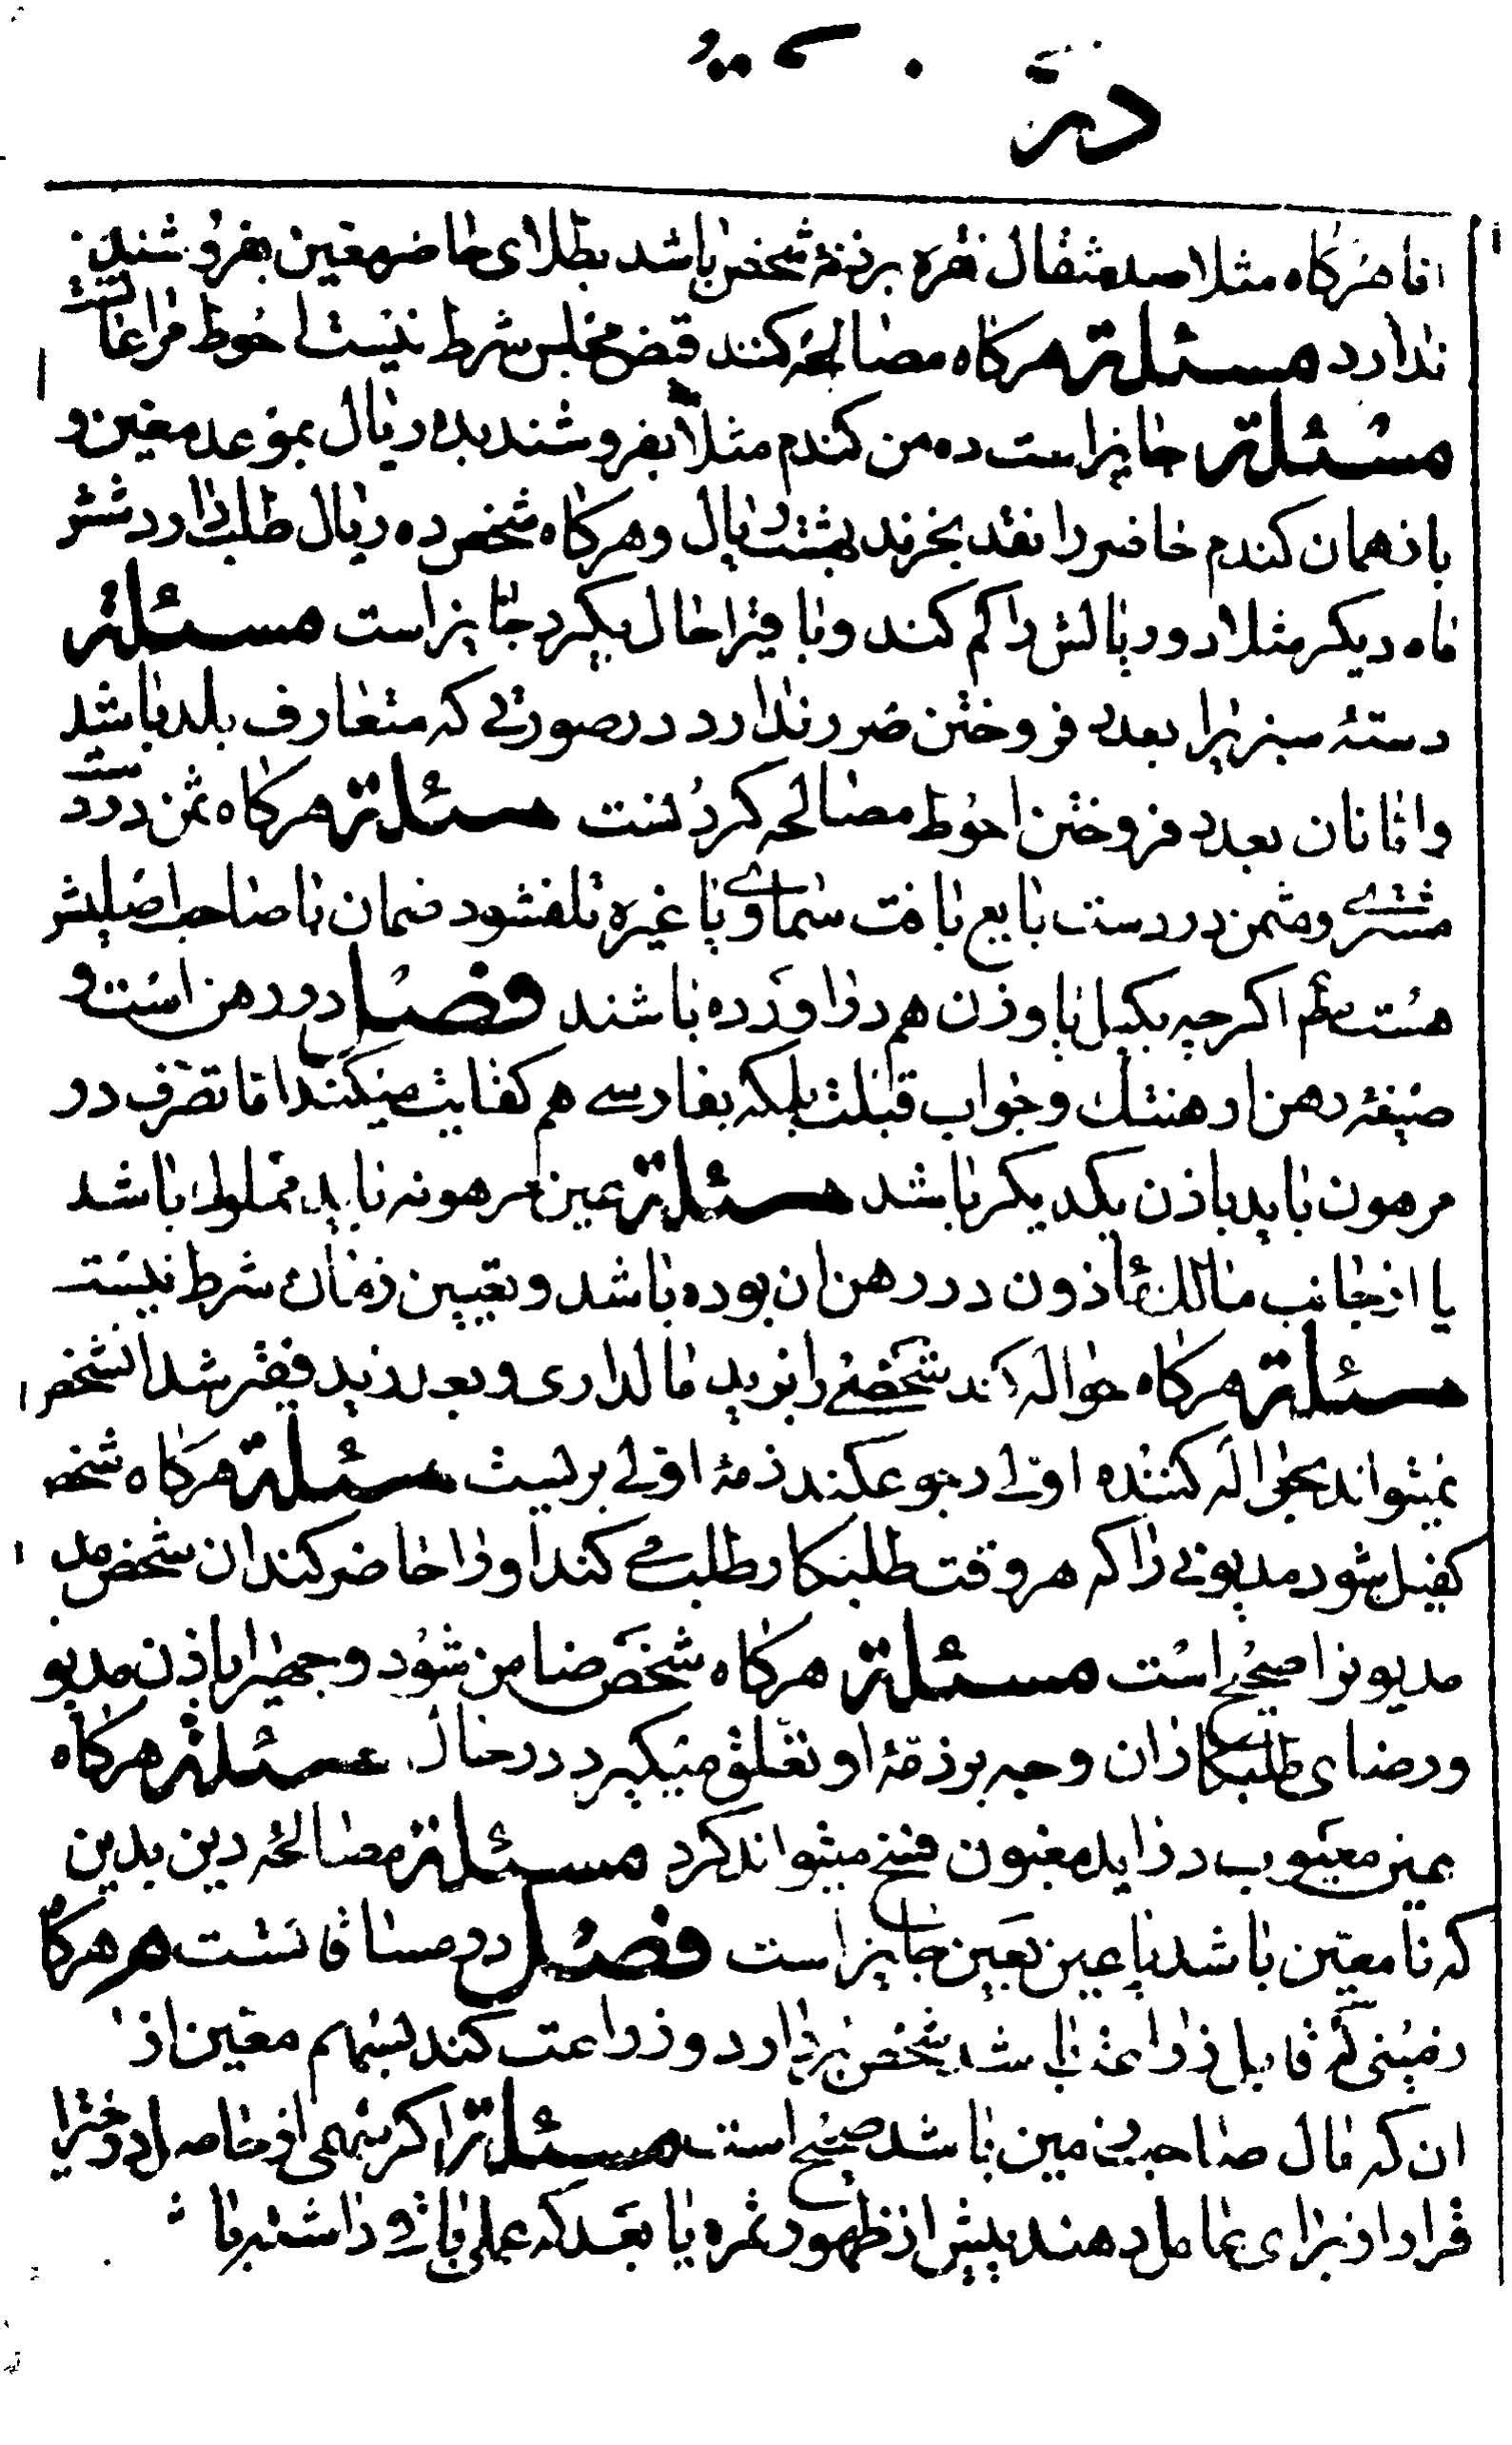 در
اما هرکاه مثلا صد مثقال نقره بر ذمهٔ شخص باشد بطلای حاضر معین بفروشند
ندارد مسئلة هرکاه مصالحه کنند قبض مجلس شرط نیست احوط مراعات
مسئلة جایز است ده من کندم مثلا بفروشند بده ریال بموعد معین و
باز همان کندم حاضر را نقد بخرند بهشت ریال و هرکاه شخص ده ریال طلب دارد شش
ماه دیکر مثلا دو ریالش را کم کند و باقیرا حال بکیرد جایز است مسئلة
دستهٔ سبزیرا بعدد فروختن ضرر ندارد در صورتی که متعارف بلد باشد
و اما نان بعدد فروختن احوط مصالحه کردنست مسئلة هرکاه ثمن در دست
مشتری و مثمن در دست بایع بافت سماوی یا غیره تلف شود ضمان با صاحب اصلیش
هست اکر چه بکیل یا وزن هم در اورده باشند فصل در رهن است و
صیغهٔ رهن ارهنتک و جواب قبلت بلکه بفارسی هم کفایت میکند اما تصرف در
مرهون باید باذن یکدیکر باشد مسئلة عین مرهونه باید مملوک باشد
یا از جانب مالک ماذون در رهن ان بوده باشد و تعیین زمان شرط نیست
مسئلة هرکاه حواله کند شخصی را بزید مالداری و بعد زید فقیر شد انشخص
نمیتواند بحواله کننده اولی رجوع کند ذمهٔ اولی بریست مسئلة هرکاه شخص
کفیل شود مدیونی را که هر وقت طلبکار طلب کند او را حاضر کند ان شخص
مدیونرا صحیح است مسئلة هرکاه شخص ضامن شود وجهیرا باذن مدیو
و رضای طلبکار ان وجه بر ذمهٔ او تعلق میکیرد در حال مسئلة هرکاه
عین معیوب در اید مغبون فسخ میتواند کرد مسئلة مصالحه دین بدین
که نا معین باشد یا عین بعین جایز است فصل در مساقاتست هر هرکاه
زمینی که قابل زراعت باشد شخص بردارد و زراعت کند بسهم معین از
ان که مال صاحب زمین باشد صحیح است مسئلة اکر سهمی از حاصل درخترا
قرارداد برای عامل دهند پیش از ظهور ثمره یا بعد که عمل باقی داشته با